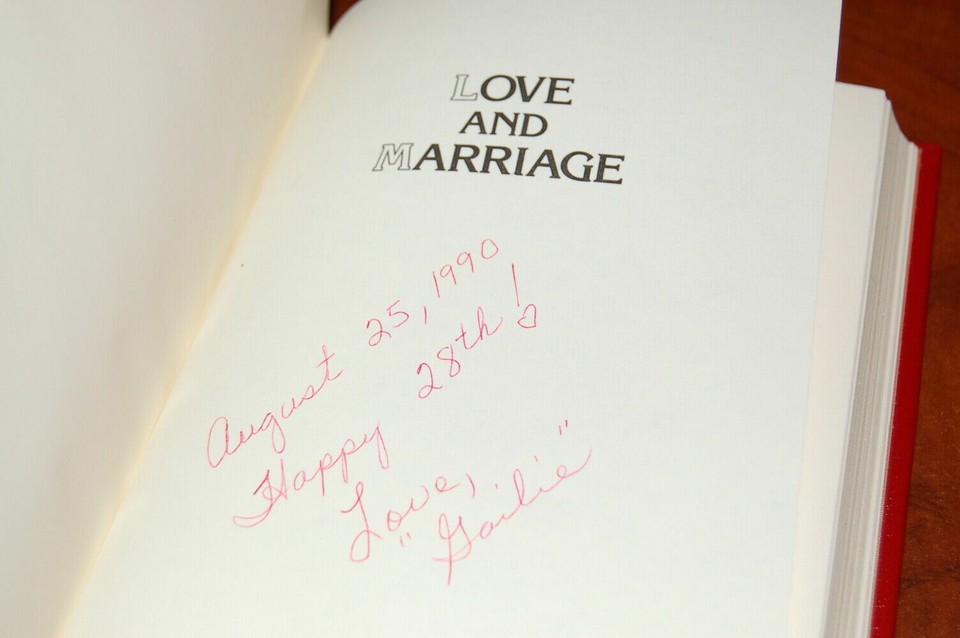 LOVE
AND
MARRIAGE
August 25, 1990
Happy 28th!
Love,
"Gailie"